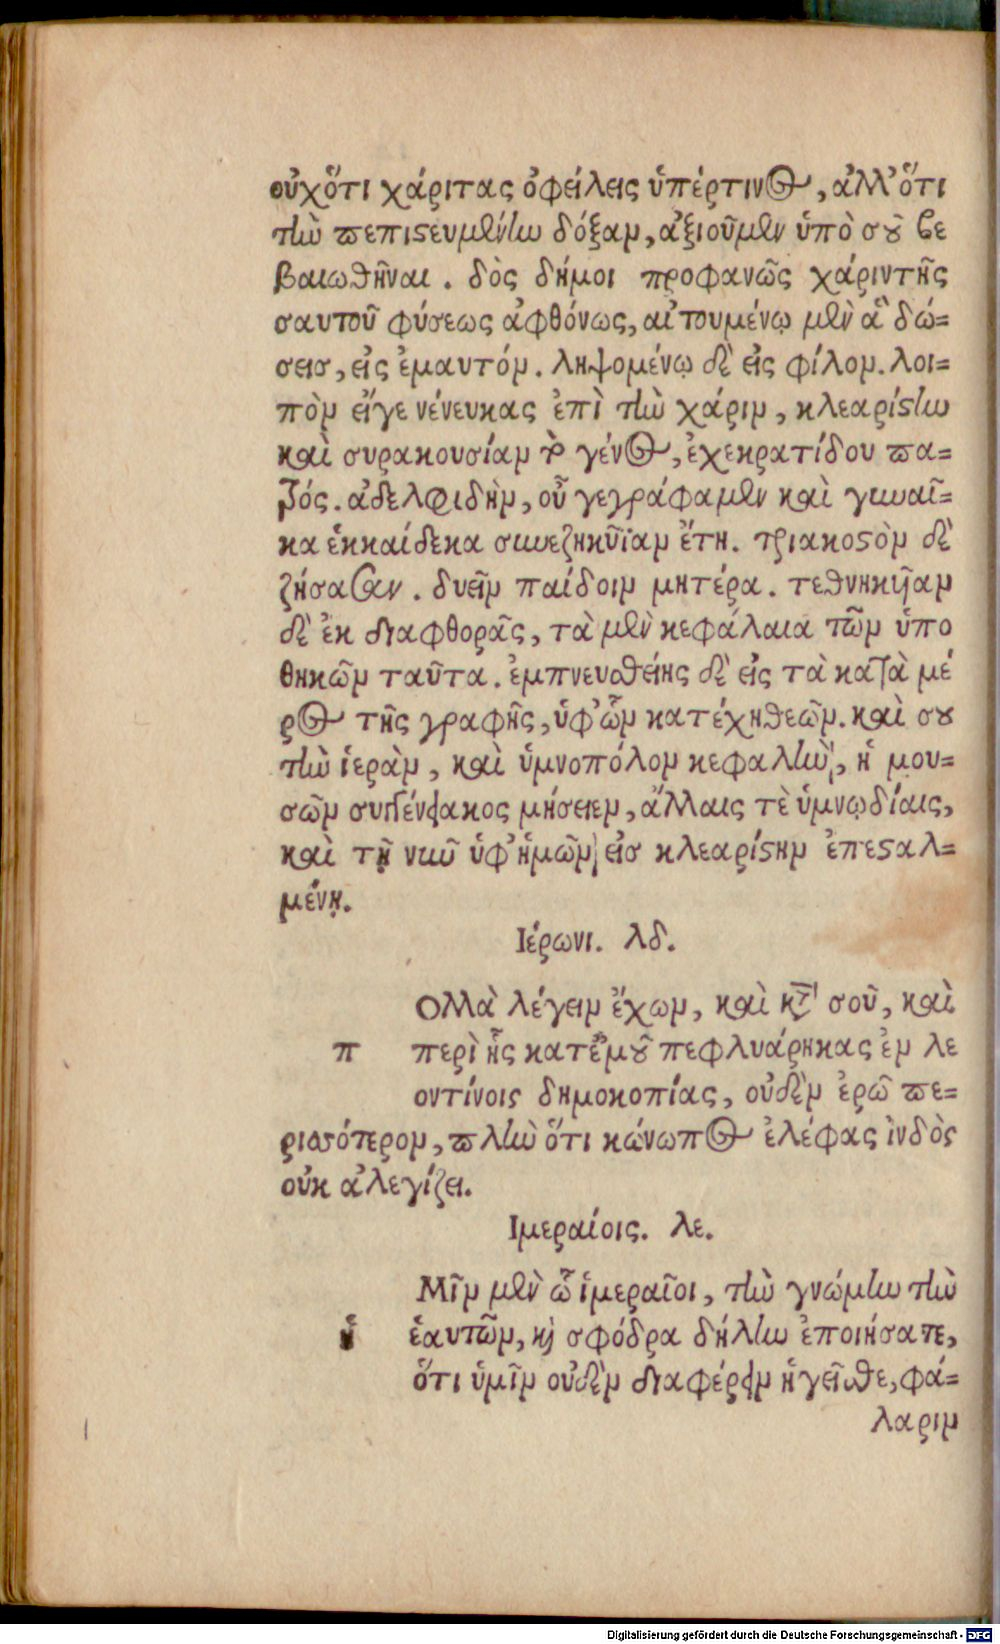 οὐχὅτι χάριτας ὀφείλεις ὑπέρτινος, ἀλλ' ὅτι
τὴν πεπιστευμένην δόξαν, ἀξιοῦμεν ὑπὸ σοῦ βε
βαιωθῆναι. δὸς δήμοι προφανῶς χάριντῆς
σαυτοῦ φύσεως ἀφθόνως, αἰτουμένῳ μὲν ἃ δώ=
σεισ, εἰς ἐμαυτόν. ληψομένῳ δὲ εἰς φίλον. λοι=
πὸν εἴγε νένευκας ἐπὶ τὴν χάριν, κλεαρίστην
καὶ συρακουσίαν τὸ γένος, ἐχεκρατίδου πα=
τρός. ἀδελφιδὴν, οὗ γεγράφαμεν καὶ γυναῖ=
κα ἑκκαίδεκα συνεζηκυῖαν ἔτη. τριακοστὸν δὲ
ζήσασαν. δυεῖν παίδοιν μητέρα. τεθνηκυῖαν
δὲ ἐκ διαφθορᾶς, τὰ μὲν κεφάλαια τῶν ὑπο
θηκῶν ταῦτα. ἐμπνευσθείης δὲ εἰς τὰ κατὰ μέ
ρος τῆς γραφῆς, ὑφ' ὧν κατέχηθεῶν. καὶ σου
τὴν ἱερὰν, καὶ ὑμνοπόλον κεφαλὴν, ἡ μου=
σῶν μήσειεν, ἄλλαις τὲ ὑμνῳδίαις,
καὶ τῇ νῦν ὑφ' ἡμῶν εἰσ κλεαρίστην ἐπεσταλ=
μένῃ.
Ιέρωνι. λδ.
Ολλὰ λέγειν ἔχων, καὶ κατὰ σοῦ, καὶ
π περὶ ἧς κατ' ἐμοῦ πεφλυάρηκας ἐν λε
οντίνοις δημοκοπίας, οὐδὲν ἐρῶ πε=
ρισσότερον, πλὴν ὅτι κώνωπος ἐλέφας ἰνδὸς
οὐκ ἀλεγίζει.
Ιμεραίοις. λε.
Μῖν μὲν ὦ ἱμεραῖοι, τὴν γνώμην τὴν
ἡ ἑαυτῶν, καὶ σφόδρα δήλην ἐποιήσατε,
ὅτι ὑμῖν οὐδὲν διαφέρειν ἡγεῖσθε, φά=
λαριν
Digitalisierung gefördert durch die Deutsche Forschungsgemeinschaft - DFG